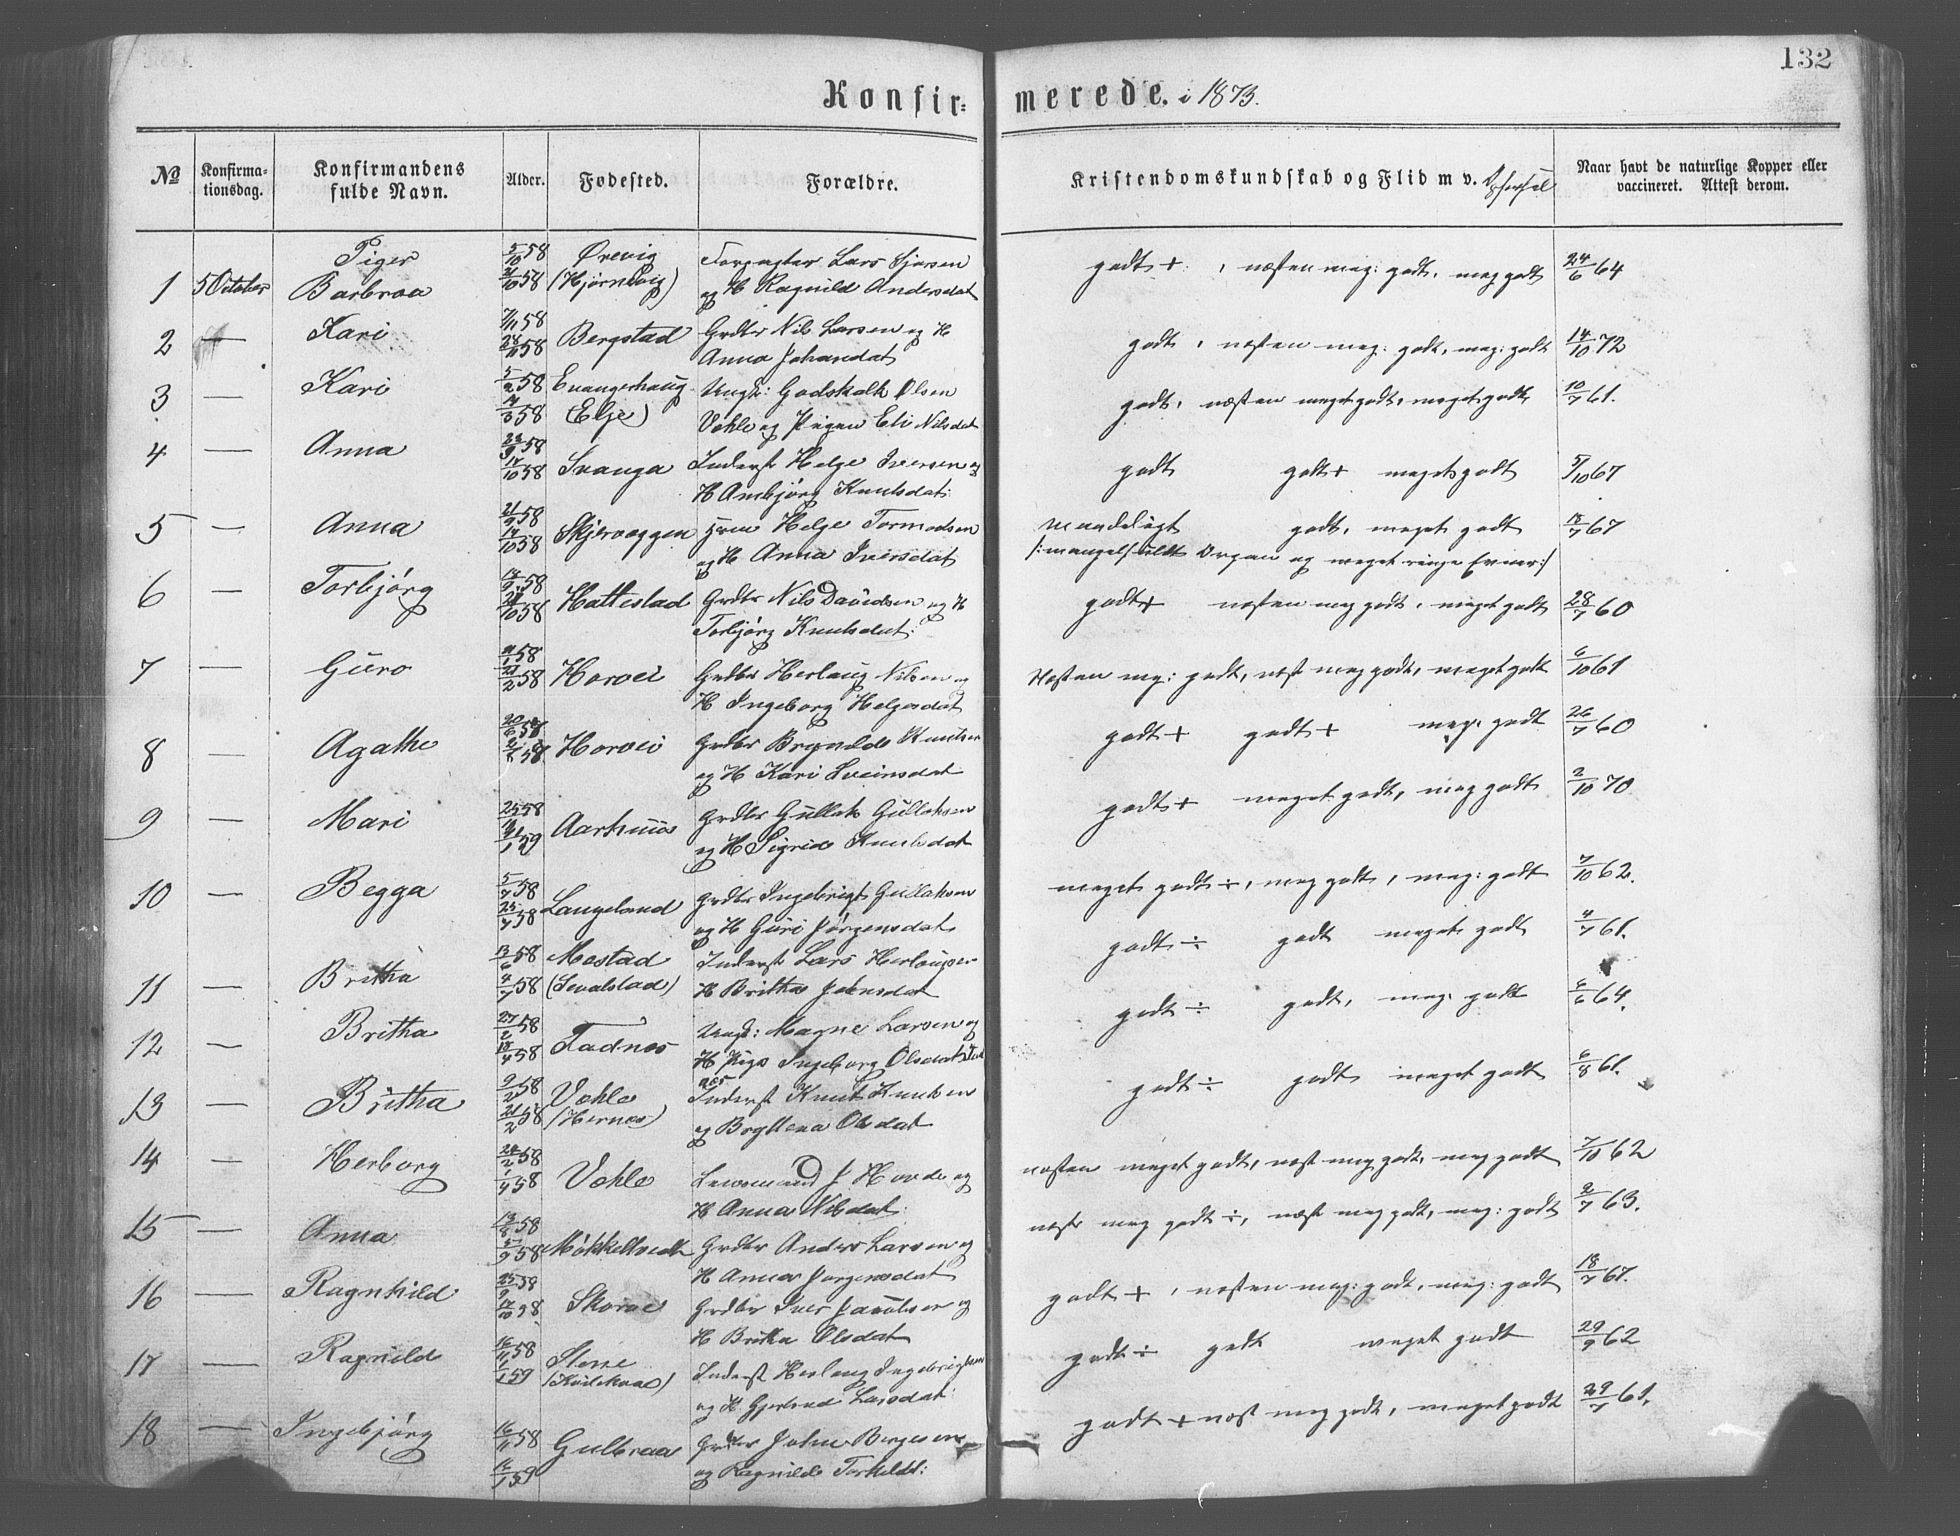 132
Konfir-merede. i 1873.
№ Konfirma-tionsdag. Konfirmandens fulde Navn. Alder. Fødested. Forældre. Kristendomskundskab og Flid m v. Opførsel Naar havt de naturlige Kopper eller vaccineret. Attest derom.
Piger 5/10 58 Ørevig Forpagter Lars
1 5 October Barbroa 21/10 58 (Hjørnevig) og H Ragnild Andersdat godt + , næsten meg: godt, meg godt 24/6 64
2 — Kari 7/11 58 Bergstad Grdbr Nils Larsen og H
28/11 58 Anna Johansdat godt , næsten meg: godt, meg: godt 14/10 72
3 — Kari 5/2 58 Evangerhaug Ungk: Godskalk Olsen
14/3 58 (Elje) Væhle og Pigen Eli Nilsdat godt, næsten meget godt, meget godt 10/7 61.
4 — Anna 23/9 58 Svanga Inderst Helge Iversen og
17/10 58 H Ambjørg Knutsdat: godt godt + meget godt 5/10 67
5 — Anna 21/9 58 Skjerveggen Helge Tormodsen
17/10 58 og H Anna Iversdat maadeligt godt, meget godt 67
/: mangelfuldt Organ og meget ringe Evner :/
6 — Torbjørg 58 Hattestad Grdbr Nils Davidsen og H
10 58 Torbjørg Knutsdat: godt + næsten meg godt, meget godt 28/7 60
7 — Guro 58 Horvei Grdbr Herlaug Nilsen og
21/2 58 H Ingeborg Helgesdat Næsten meg: godt, næst meg godt, meget godt 6/10 61
8 — Agathe 20/6 58 Horvei Grdbr Brynild Knutsen
58 og H Kari Sveinsdat godt + godt + meg: godt 26/7 60
9 — Mari 58 Aarhuus Grdbr Gullak Gullaksen
1 59 og H Sigrid Knutsdat godt + meget godt, meg godt 2/10 70
10 — Begga 5/7 58 Langeland Grdbr Ingebrigt Gullaksen
25/7 58 og H Guri Jørgensdat meget godt ÷, meg godt, meg: godt 7/10 62.
11 — Britha 13/6 58 Mestad Inderst Lars Herlaugsen
4/7 58 (Sevalstad) H Britha Johnsdat godt ÷ godt meget godt 4/7 61.
12 — Britha 27/2 58 Fadnes Ungk: Magne Larsen og
18/4 58 H Pige Ingeborg Olsdat Fadnes godt ÷ godt, meg: godt 6/6 64.
13 — Britha 9/2 58 Væhle Inderst Knut Knutsen
21/2 58 (Hernes) og Olsdat godt ÷ godt meget godt 6/8 61.
14 — Herborg 24/2 58 Væhle Lensmand J Horde og
1/4 58 H Anna Nilsdat: næsten meget godt, næst meg godt, meg godt 7/10 62
15 — Anna 13/8 58 Møkkeltvedt Grdbr Anders Larsen og
5/9 58 H Anna Jørgensdat næst meg godt ÷, næst meg godt, meg: godt 2/7 63.
16 — Ragnhild 25/9 58 Skorve Grdbr Iver Jacobsen og
17/10 58 H Britha Olsdat godt + , næsten meg: godt, meg: godt 18/7 67.
17 — Ragnild 16/11 58 Sterre Inderst Herlaug Ingebrigtsen
1/1 59 og H. Gjertrud Larsdat: godt ÷ godt meget godt 29/9 62
18 — Ingebjørg 16/11 58 Gulbraa Grdbr John Børgesen
1 59 og Ragnilde Torkildt: godt + næst meg godt, meget godt 29/7 61.